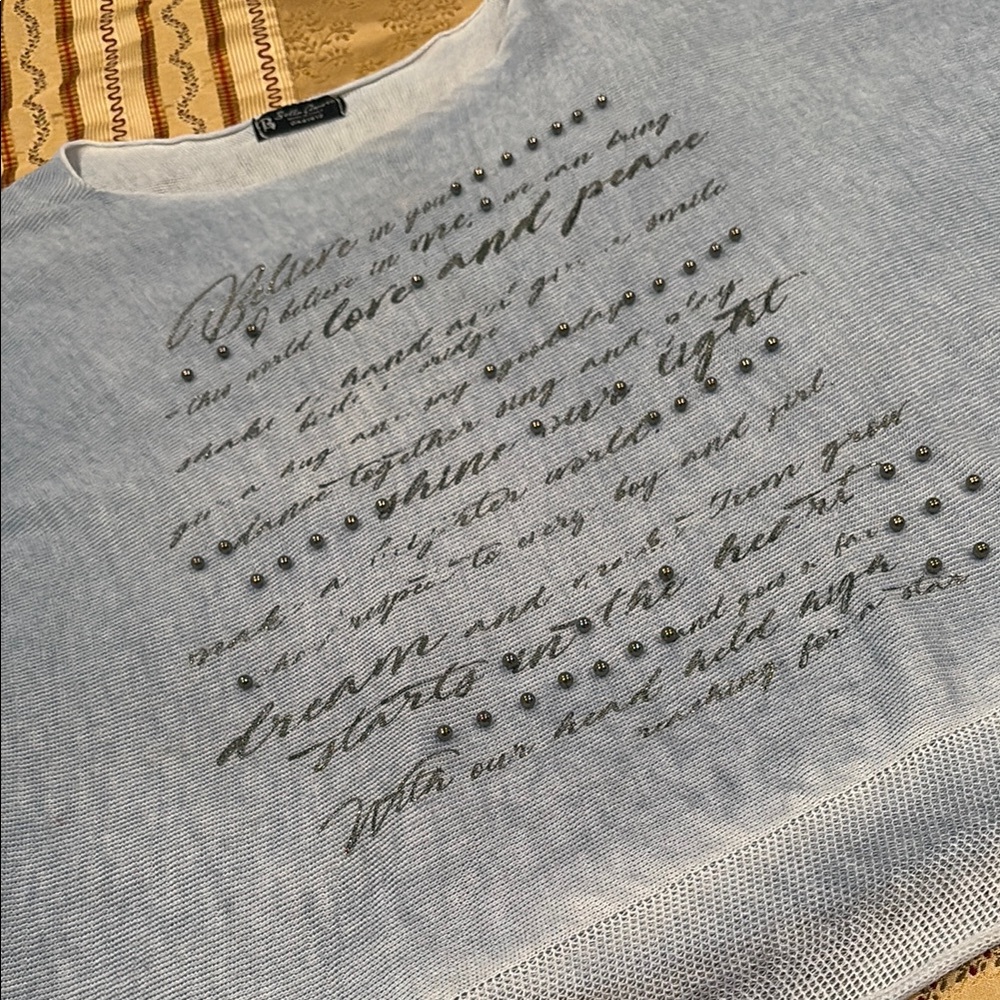 Believe in you
I believe in me, we can bring
this world love and peace
shake a hand and give a smile
a hug and say good day
dance together sing and play
shine our light
make a brighter world.
respect to every boy and girl.
dream and wish. Them grow
starts in the heart
and goes far
With our head held high
reaching for a star